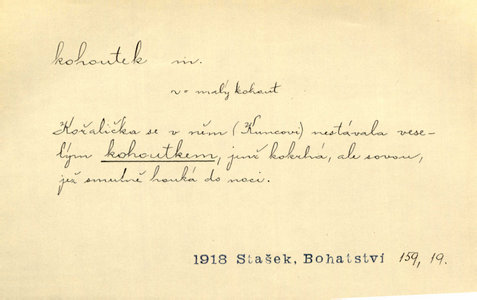 kohoutek m.
v = malý kohout
Kořalička se v něm (Kuncovi) nestávala vese-
lým kohoutkem, jenž kokrhá, ale sovou,
jež smutně houká do noci.
1918 Stašek, Bohatství 159, 19.